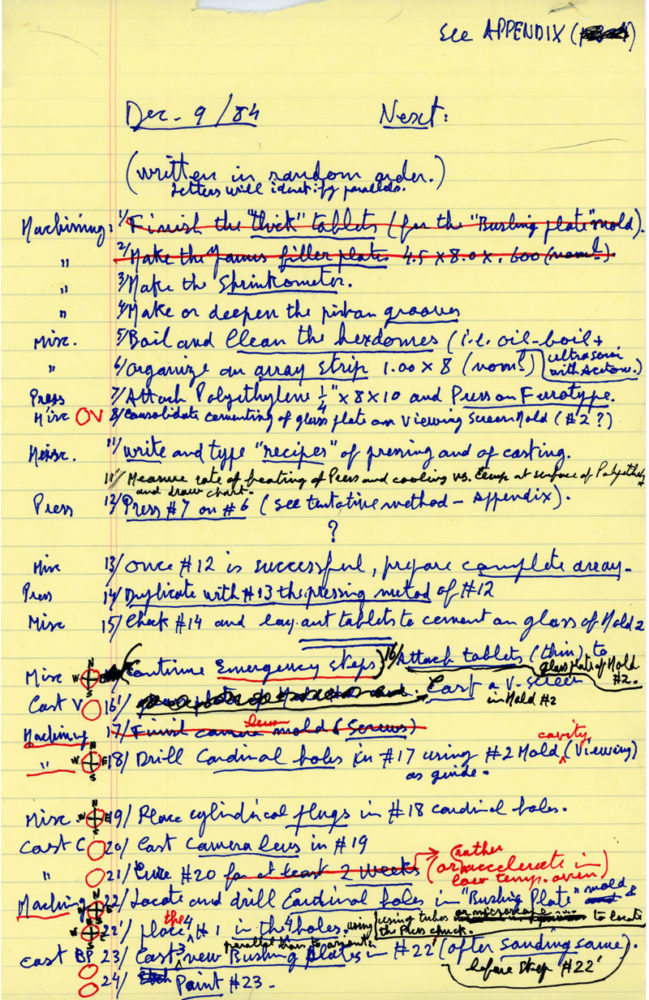 See APPENDIX (
Dec. 9/84 Next:
(written in random order.)
Letters will identify parallels.
Machining: 1/ Finish the "thick" tablets (for the "Bushing plate" mold).
" 2/ Make the filler plates 4.5 x 8.0 x .600 (nom!).
" 3/ Make the Shrinkometer.
" 4/ Make or deepen the piston grooves
Misc. 5/ Boil and Clean the hexdomes (i.e. oil-boil +
ultrason. with Acetone.)
" 6/ Organize an array strip 1.00 x 8 (nom!)
Press 7/ Attach Polyethylene 1/4" x 8 x 10 and Press on Ferotype.
Misc OV 8/ consolidate cementing of glass plate on Viewing Screen Mold (#2?)
Misc. 11/ write and type "recipes" of pressing and of casting.
11'/ Measure rate of heating of Press and cooling vs. temp at surface of
and draw chart.
Press 12/ Press #7 on #6 (see tentative method - Appendix).
?
Misc 13/ once #12 is successful, prepare complete array.
Press 14/ Duplicate with #13 the pressing method of #12
Misc 15/ Check #14 and lay out tablets to cement on glass of Mold 2
Misc N W E S Continue Emergency steps) 16/ Attach tablets (thin) to
glass plate of Mold #2.
Cast V 16'/ Cast a V. screen
in Mold #2
Machining 17/ Finish camera lens mold (Screws)
" N W E S 18/ Drill Cardinal holes in #17 using #2 Mold (Viewing) cavity
as guide.
Misc. N W E S 19/ Place cylindrical plugs in #18 cardinal holes.
Cast C 20/ Cast Camera lens in #19
" 21/ Cure #20 for at least 2 Weeks (or accelerate in
low temp. oven)
Machining N W E S 22/ Locate and drill Cardinal holes in "Bushing Plate" mold
N W E S 22'/ place the #1 in the 4 holes. using (using tubes to locate
the Press chuck.
Cast BP 23/ Cast 3 new Bushing plates in #22' (after sanding same).
before step #22'
24/ Paint #23.